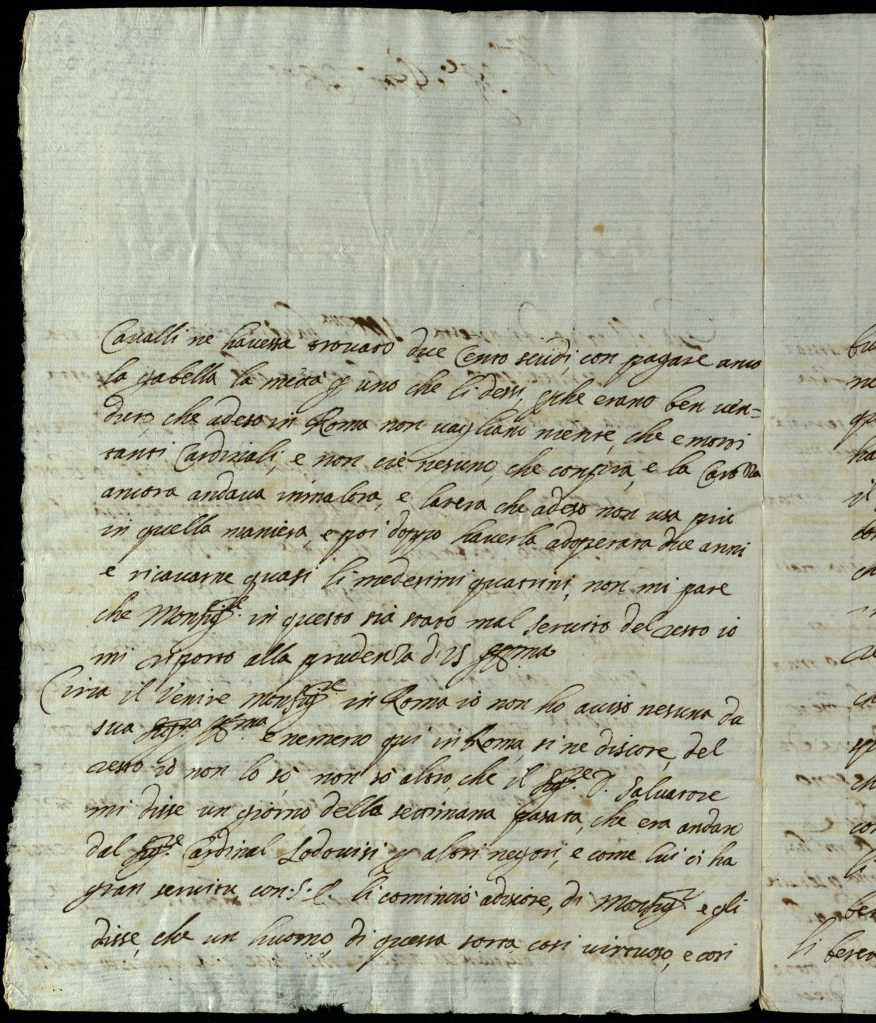 Cavalli ne havessa trovato due cento scudi, con pagare anco
la gabella la metà p uno che li dessi, pche erano ben ven=
duti, che adeso in Roma non vagliano niente, che e morti
tanti Cardinali, e non cie nesuno, che conpra, e la Carozza
ancora andava in malora, e l'atera che adeso non usa più
in quella maniera, e poi doppo haverla adoperata due anni
e ricavarne quasi li medesimi quatrini, non mi pare
che Monsigre in questo sia stato mal servito del resto io
mi riporto alla prudenza di VS
Circa il Venire Monsigre in Roma io non ho aviso nesuna da
sua e nemeno qui in Roma si ne discore, del
resto io non lo so, non so altro, che il Sigre D. Salvatore
mi disse un giorno della settimana pasata, che era andato
dal Sigre Cardinal Lodovisi p altri negoti, e come lui ci ha
gran servitu con S. E. li cominciò adiscore, di Monsigre e gli
disse, che un huomo, di questa sorta cosi virtuoso, e cosi